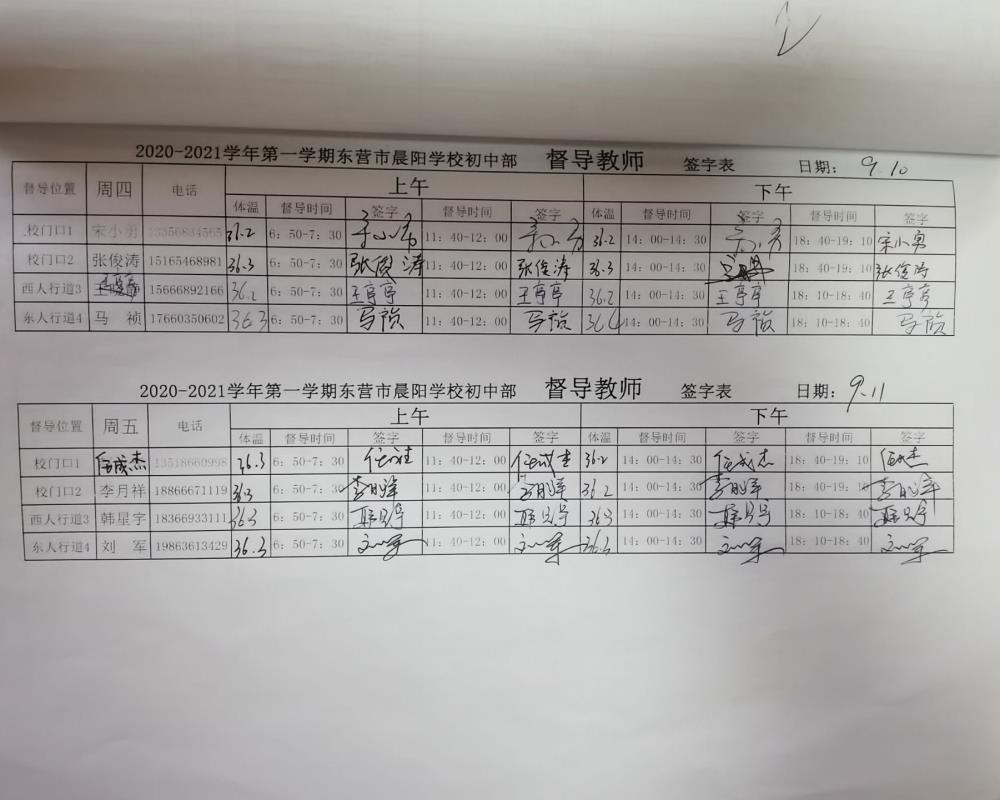 2020-2021学年第一学期东营市晨阳学校初中部 督导教师 签字表 日期： 9.10
督导位置 周四 电话 上午 下午
体温 督导时间 签字 督导时间 签字 体温 督导时间 签字 督导时间 签字
校门口1 宋小勇 13356834565 36.2 6：50-7：30 宋小勇 11：40-12：00 宋小勇 36.2 14：00-14：30 宋小勇 18：40-19：10 宋小勇
校门口2 张俊涛 15165468981 36.3 6：50-7：30 张俊涛 11：40-12：00 张俊涛 36.3 14：00-14：30 18：40-19：10 张俊涛
西人行道3 王亭亭 15666892166 36.2 6：50-7：30 王亭亭 11：40-12：00 王亭亭 36.2 14：00-14：30 王亭亭 18：10-18：40 王亭亭
东人行道4 马 祯 17660350602 36.3 6：50-7：30 马祯 11：40-12：00 马祯 36.4 14：00-14：30 马祯 18：10-18：40 马祯
2020-2021学年第一学期东营市晨阳学校初中部 督导教师 签字表 日期： 9.11
督导位置 周五 电话 上午 下午
体温 督导时间 签字 督导时间 签字 体温 督导时间 签字 督导时间 签字
校门口1 任成杰 13518660998 36.3 6：50-7：30 任成杰 11：40-12：00 任成杰 36.2 14：00-14：30 任成杰 18：40-19：10 任成杰
校门口2 李月祥 18866671119 36.3 6：50-7：30 李月祥 11：40-12：00 李月祥 36.2 14：00-14：30 李月祥 18：40-19：10 李月祥
西人行道3 韩星宇 18366933111 36.3 6：50-7：30 韩星宇 11：40-12：00 韩星宇 36.3 14：00-14：30 韩星宇 18：10-18：40 韩星宇
东人行道4 刘 军 19863613429 36.3 6：50-7：30 刘军 11：40-12：00 刘军 36.3 14：00-14：30 刘军 18：10-18：40 刘军